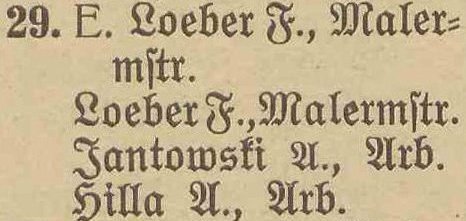 29. E. Loeber F., Maler=
mſtr.
Loeber F., Malermſtr.
Jantowski A., Arb.
Hilla A., Arb.